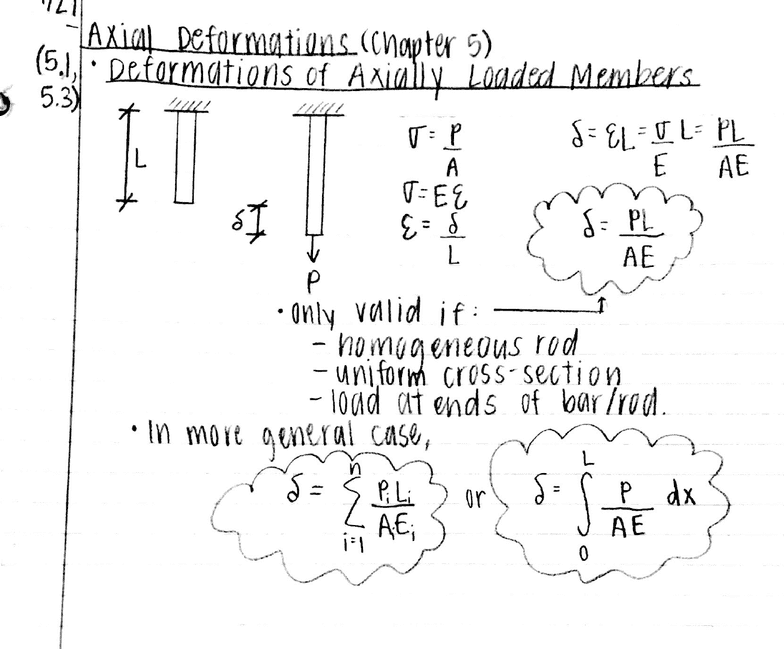 Axial Deformations (Chapter 5)
(5.1, 5.3)
• Deformations of Axially Loaded Members
L
δ
P
σ = P/A
σ = Eε
ε = δ/L
δ = εL = σ/E L = PL/AE
δ = PL/AE
• only valid if:
- homogeneous rod
- uniform cross-section
- load at ends of bar/rod.
• In more general case,
δ = Σ_{i=1}^{n} P_i L_i / A_i E_i or δ = ∫_0^L P/AE dx